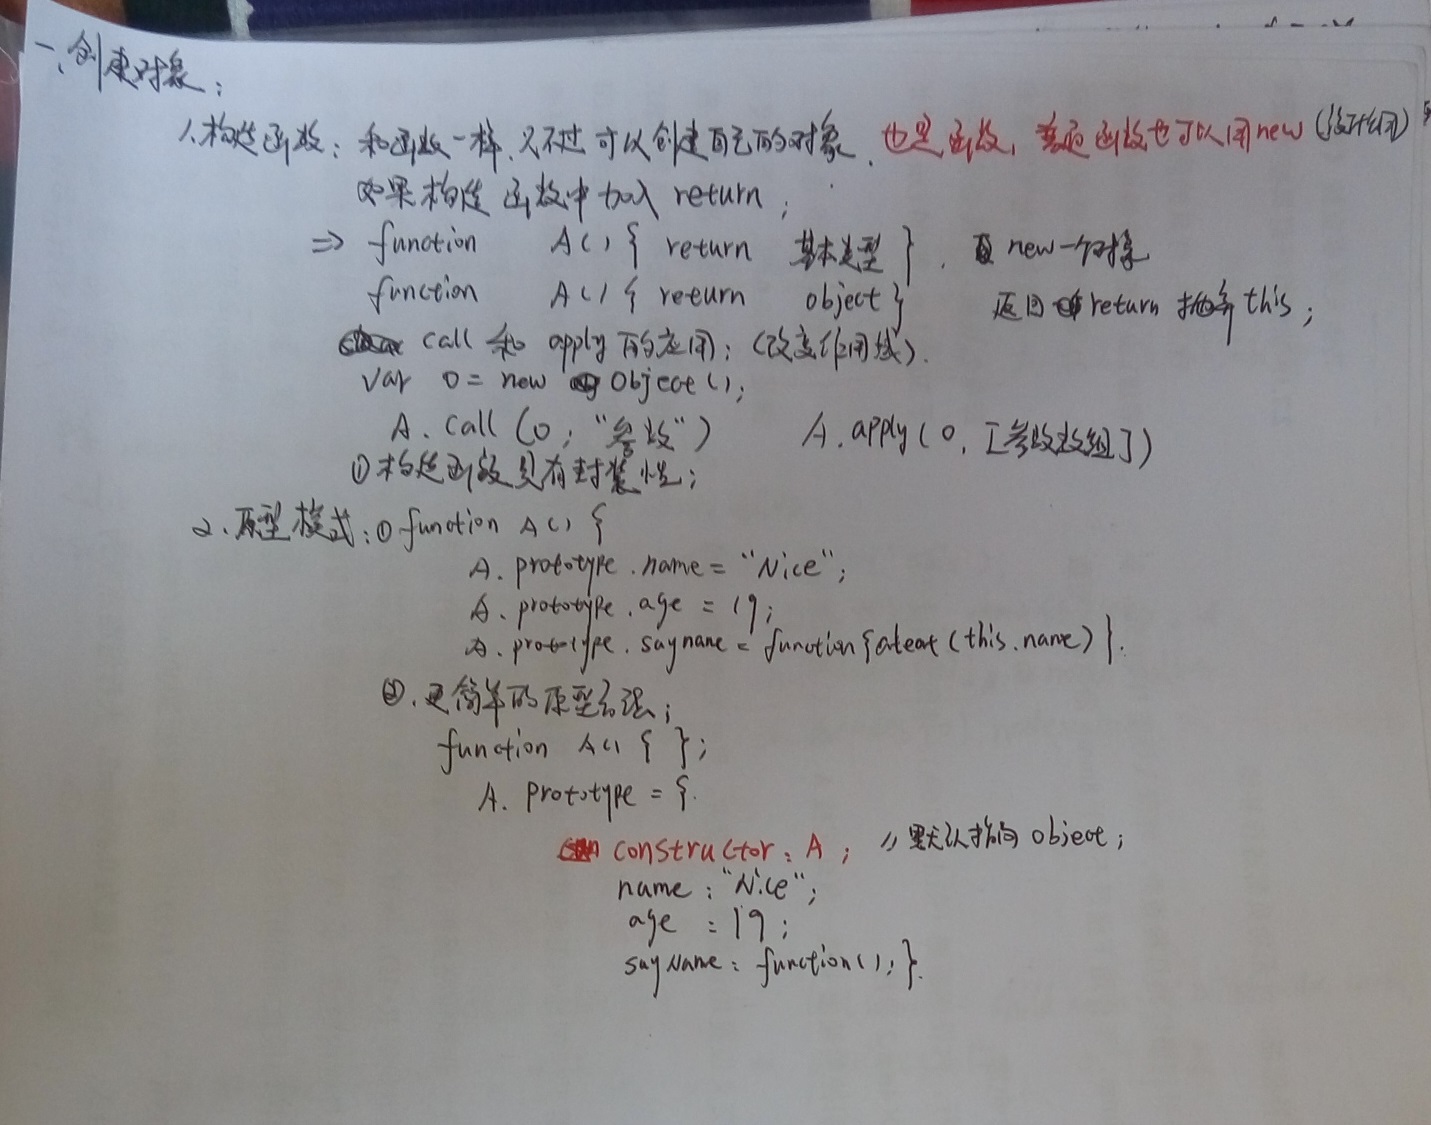 一、创建对象：
1. 构造函数：和函数一样，只不过可以创建自己的对象，也是函数，普通函数也可以用new（没作用）
如果构造函数中加入 return；
=> function A() { return 基本类型 }. new一个对象
function A() { return object} 返回 return 抛弃this；
call 和 apply 的应用；（改变作用域）.
var o = new Object();
A. call (o, "参数") A. apply (o, [参数数组])
① 构造函数具有封装性；
2. 原型模式：① function A() {
A. prototype. name = "Nice";
A. prototype. age = 19;
A. prototype. sayname = function{aleat (this.name)}.
②. 更简单的原型语法；
function A() { };
A. prototype = {.
constructor: A; // 默认指向 object;
name: "Nice";
age : 19;
sayName: function();}.